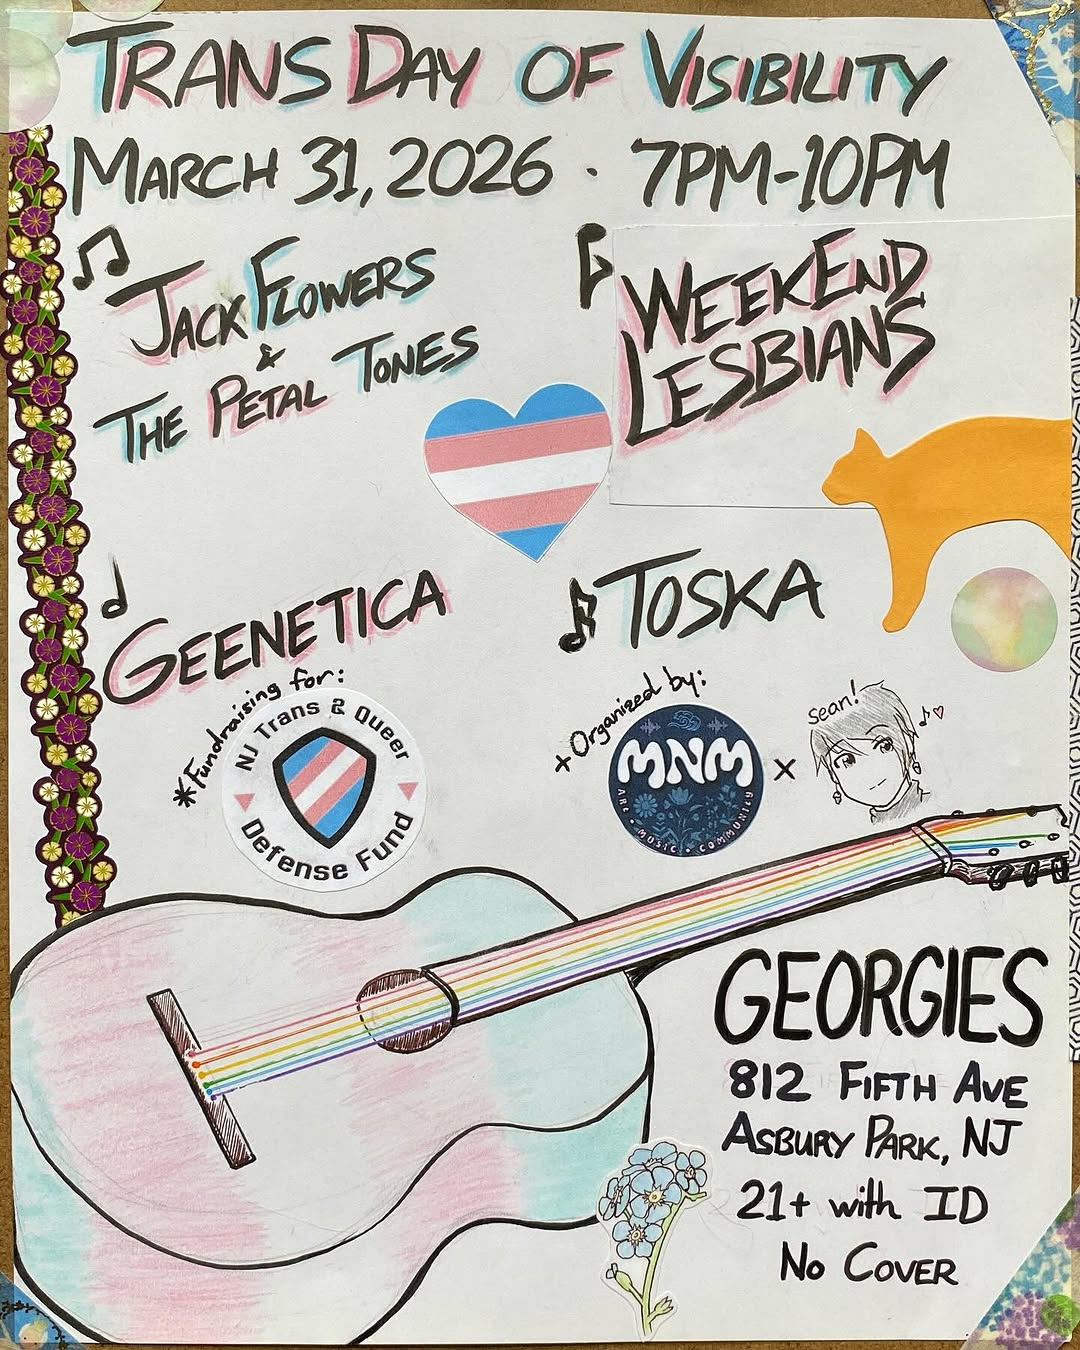 TRANS DAY OF VISIBILITY
MARCH 31, 2026 · 7PM-10PM
JACK FLOWERS
&
THE PETAL TONES
WEEKEND
LESBIANS
GEENETICA
TOSKA
*Fundraising for:
NJ Trans & Queer
Defense Fund
+ Organized by:
MNM
ART • MUSIC • COMMUNITY
x
sean!
GEORGIES
812 FIFTH AVE
ASBURY PARK, NJ
21+ with ID
NO COVER